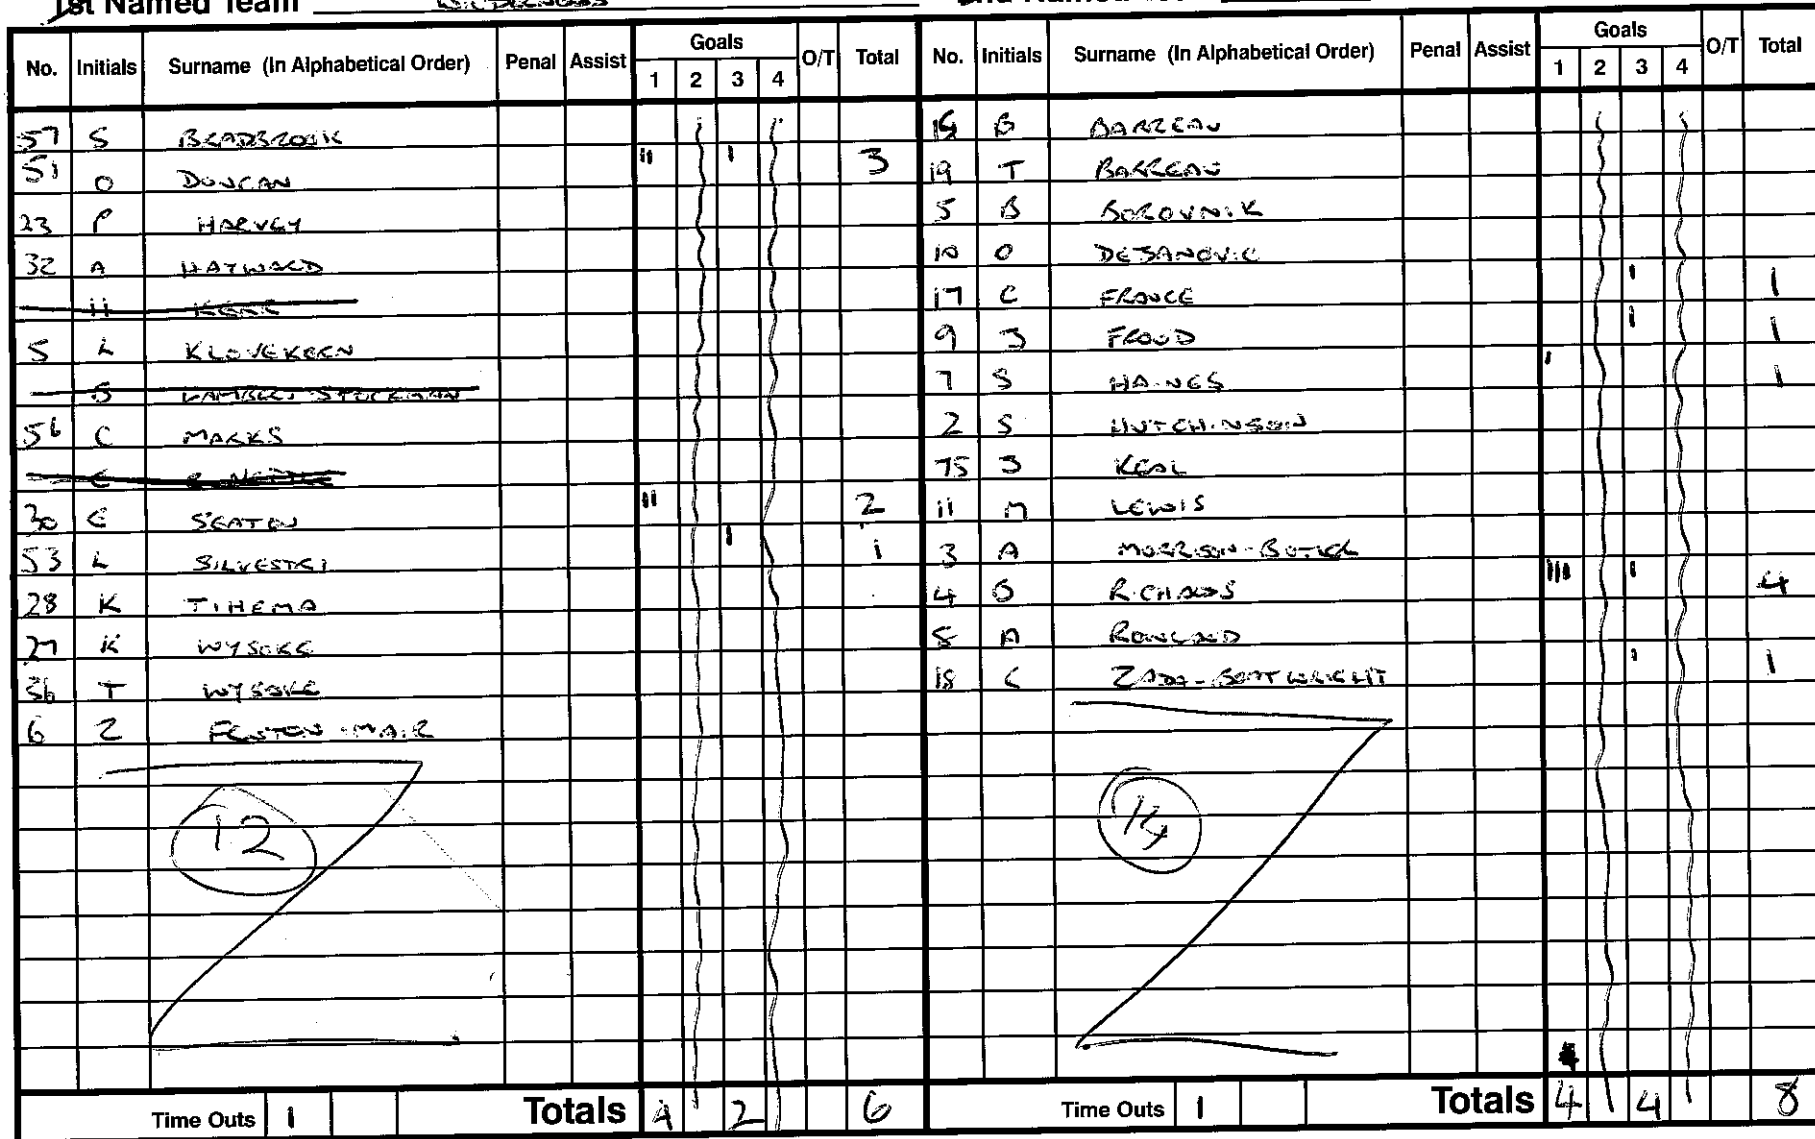 1st Named Team WILDERNESS
No. Initials Surname (In Alphabetical Order) Penal Assist Goals 1 2 3 4 O/T Total
57 S BRADBROOK
51 O DUNCAN II I 3
23 P HARVEY
32 A HAYWARD
5 L KLOVEKORN
56 C MARKS
30 E SEATON II 2
53 L SILVESTRI I 1
28 K TIHEMA
27 K WYSOKE
36 T WYSOKE
6 Z FENTON-MAIR
12
Time Outs 1 Totals 4 2 6
No. Initials Surname (In Alphabetical Order) Penal Assist Goals 1 2 3 4 O/T Total
B BARREAU
19 T BARREAU
5 B BOROVNIK
10 O DEJANOVIC
17 C FRANCE I 1
9 J FROUD I 1
7 S HAINES I 1
2 S HUTCHINSON
75 J KEAL
11 M LEWIS
3 A MORRISON-BUTLER
4 O RICHARDS III I 4
A ROWLAND
18 C ZADA-BOATWRIGHT I 1
14
Time Outs 1 Totals 4 4 8